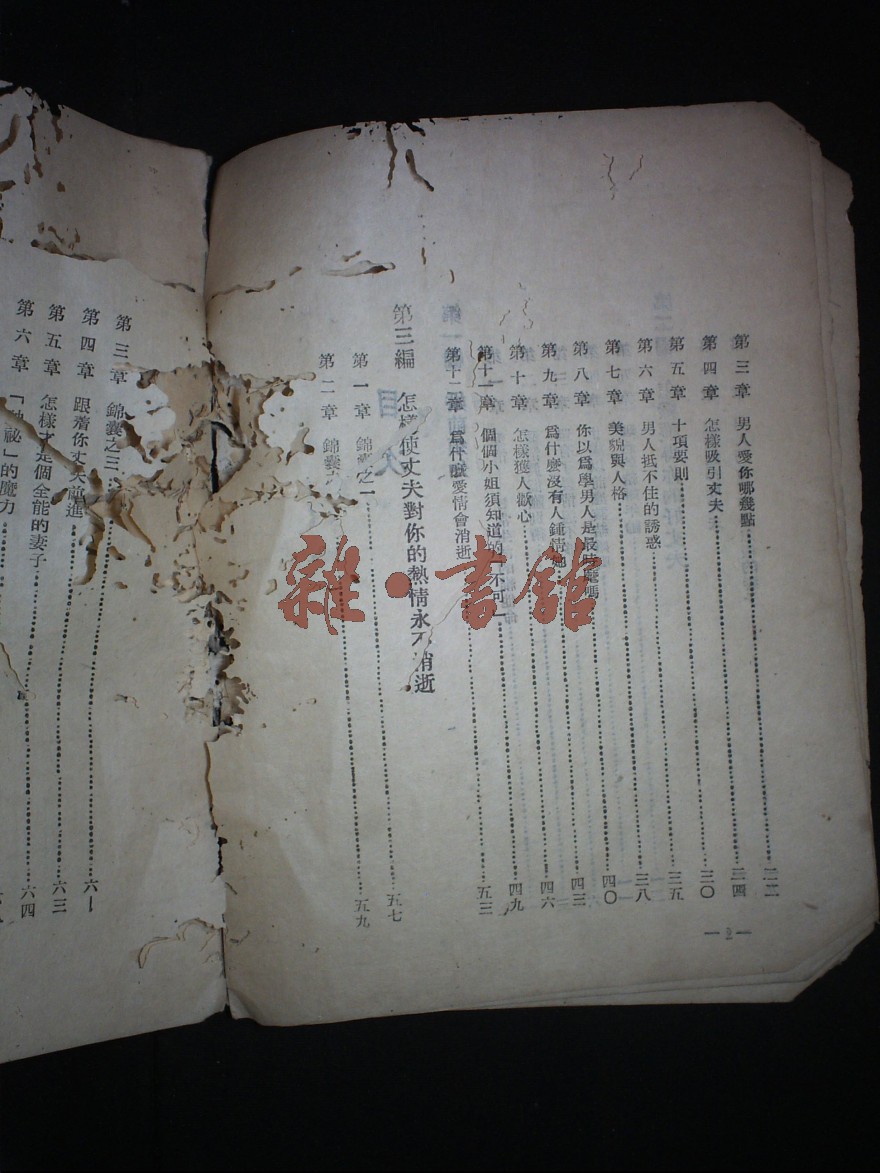 第三章 男人愛你哪幾點 二二
第四章 怎樣吸引丈夫 二四
第五章 十項要則 三〇
第六章 男人抵不住的誘惑 三五
第七章 美貌與人格 三八
第八章 你以爲學男人是最時髦嗎 四〇
第九章 爲什麼沒有人鍾情她 四三
第十章 怎樣獲人歡心 四六
第十一章 個個小姐須知道的「不可」 四九
第十二章 爲什麼愛情會消逝 五三
第三編 怎樣使丈夫對你的熱情永不消逝
第一章 錦囊之一 五七
第二章 錦囊之 五九
— 2 —
第三章 錦囊之三 六一
第四章 跟着你丈夫前進 六三
第五章 怎樣才是個全能的妻子 六四
第六章 「神祕」的魔力
雜·書館